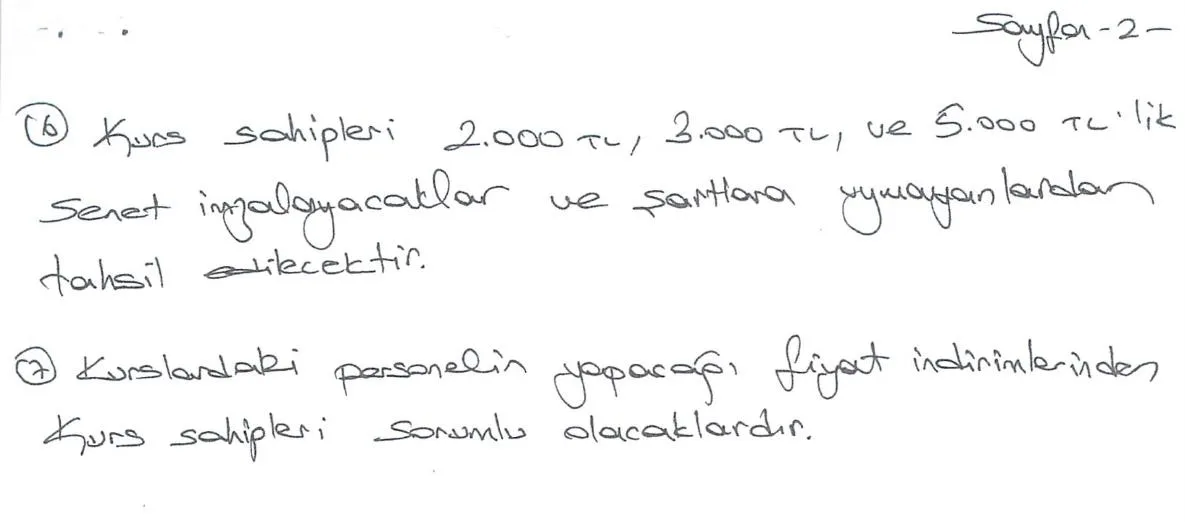 Sayfa -2-
(6) Kurs sahipleri 2.000 TL, 3.000 TL, ve 5.000 TL'lik
Senet imzalayacaklar ve şartlara uymayanlardan
tahsil edilecektir.
(7) Kurslardaki personelin yapacağı fiyat indirimlerinden
Kurs sahipleri sorumlu olacaklardır.